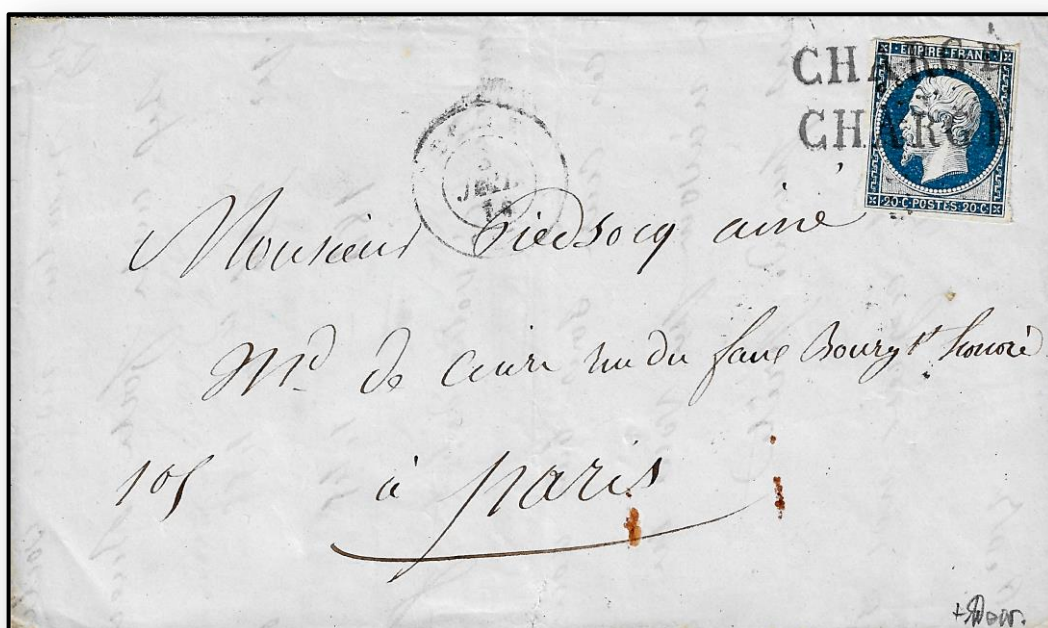 CHARGÉ
CHARGÉ
EMPIRE FRANC
20·C·POSTES 20·C·
3
JUIL
Monsieur Piedsocq ainé
Md de cuir rue du faux Bourg St honoré
105 à paris